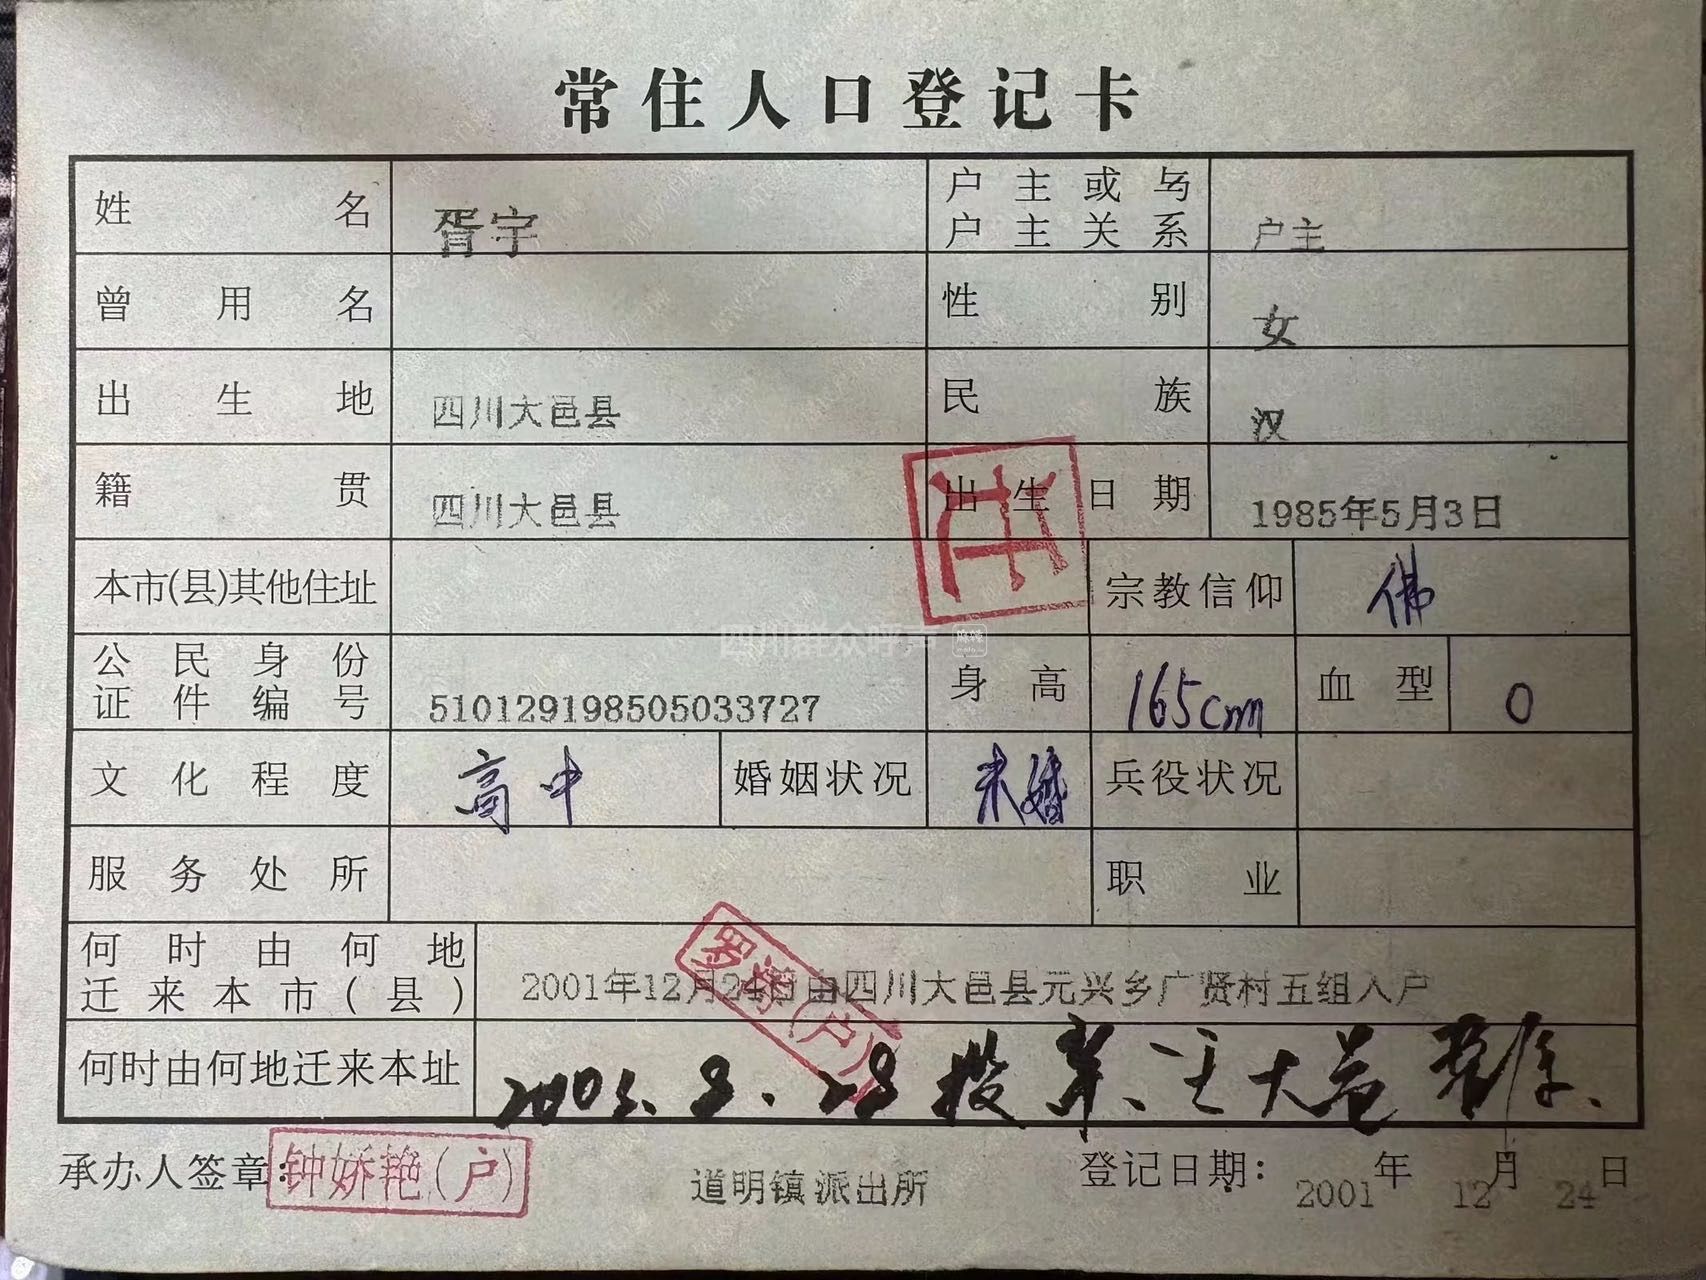 常住人口登记卡
姓名 胥宇 户主或与户主关系 户主
曾用名 性别 女
出生地 四川大邑县 民族 汉
籍贯 四川大邑县 出生日期 1985年5月3日
本市(县)其他住址 宗教信仰 佛
四川群众呼声
公民身份证件编号 510129198505033727 身高 165cm 血型 O
文化程度 高中 婚姻状况 未婚 兵役状况
服务处所 职业
何时由何地迁来本市(县) 2001年12月24日由四川大邑县元兴乡广贤村五组入户
罗 (户)
何时由何地迁来本址 2005.8.28 大邑
承办人签章: 钟娇艳(户) 道明镇派出所 登记日期: 2001年12月24日